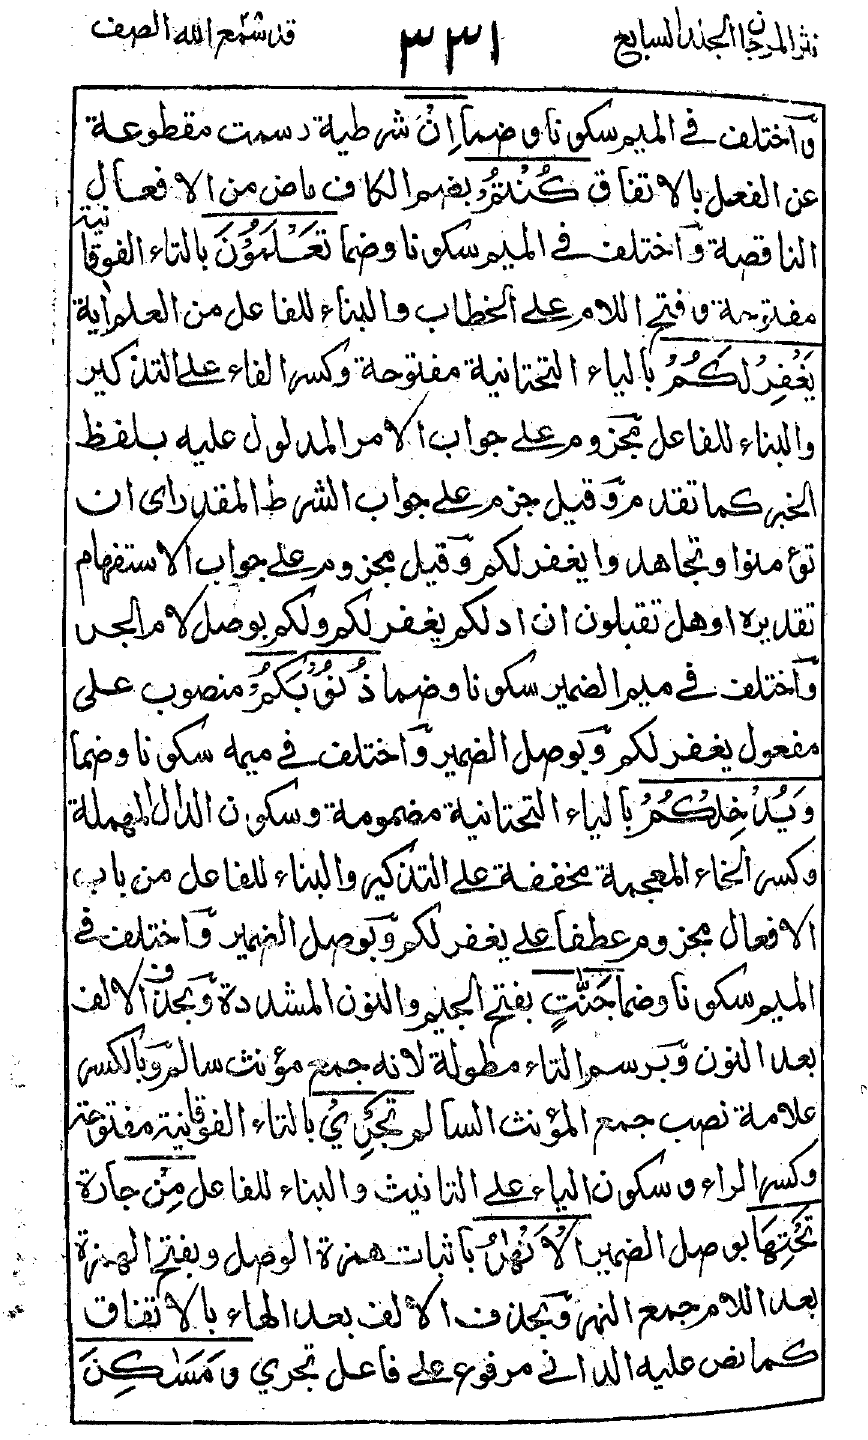 نثر المرجان الجلد السابع
٣٣١
قد سمع الله الصف
واختلف في الميم سكونا وضما اِنْ شرطية رسمت مقطوعة
عن الفعل بالاتفاق كُنْتُمْ بضم الكاف ماض من الافعال
الناقصة واختلف في الميم سكونا وضما تَعْلَمُوْنَ بالتاء الفوقانية
مفتوحة وفتح اللام على الخطاب والبناء للفاعل من العلم اية
يَغْفِرْ لَكُمْ بالياء التحتانية مفتوحة وكسر الفاء على التذكير
والبناء للفاعل مجزوم على جواب الامر المدلول عليه بلفظ
الخبر كما تقدم وقيل جزم على جواب الشرط المقدر اى ان
تؤمنوا وتجاهدوا يغفر لكم وقيل مجزوم على جواب الاستفهام
تقديره اوهل تقبلون ان ادلكم يغفر لكم ولكم بوصل لام الجر
واختلف في ميم الضمير سكونا وضما ذُنُوْبَكُمْ منصوب على
مفعول يغفر لكم وبوصل الضمير واختلف في ميمه سكونا وضما
وَيُدْخِلْكُمْ بالياء التحتانية مضمومة وسكون الدال المهملة
وكسر الخاء المعجمة مخففة على التذكير والبناء للفاعل من باب
الافعال مجزوم عطفا على يغفر لكم وبوصل الضمير واختلف في
الميم سكونا وضما جَنّٰتٍ بفتح الجيم والنون المشددة وبحذف الالف
بعد النون وبرسم التاء مطولة لانه جمع مؤنث سالم وبالكسر
علامة نصب جمع المؤنث السالم تَجْرِيْ بالتاء الفوقانية مفتوحة
وكسر الراء وسكون الياء على التانيث والبناء للفاعل مِنْ جارة
تَحْتِهَا بوصل الضمير الْاَنْهٰرُ باثبات همزة الوصل وبفتح الهمزة
بعد اللام جمع النهر وبحذف الالف بعد الهاء بالاتفاق
كما نص عليه الداني مرفوع على فاعل تجري وَمَسٰكِنَ